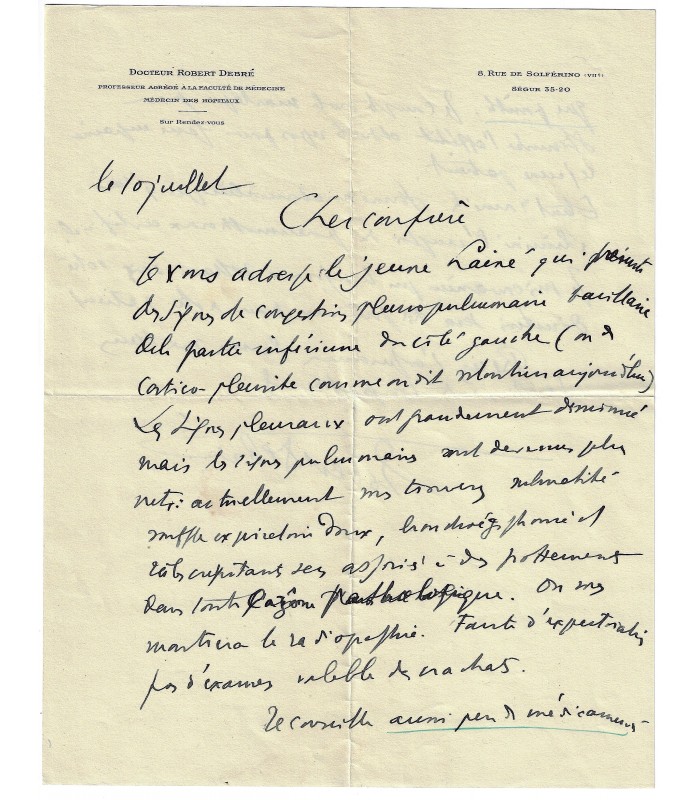 Docteur Robert Debré
Professeur agrégé à la Faculté de Médecine
Médecin des Hopitaux
Sur Rendez-vous
8, Rue de Solférino (VIIe)
Ségur 35-20
le 10 juillet
Cher confrère
Je vous adresse le jeune Lainé qui présente
des signes de congestion pleuropulmonaire bacillaire
de la partie inférieure du côté gauche (ou de
cortico-pleurite comme on dit volontiers aujourd'hui)
Les signes pleuraux ont grandement diminué
mais les signes pulmonaires sont devenus plus
nets: actuellement vous trouverez submatité
souffle expiratoire doux, bronchoégophonie et
râles crépitants secs associés à des frottements
dans toute la zône pathologique. On vous
montrera la radiographie. Faute d'expectoration
pas d'examen valable des crachats.
Je conseille aussi peu de médicaments